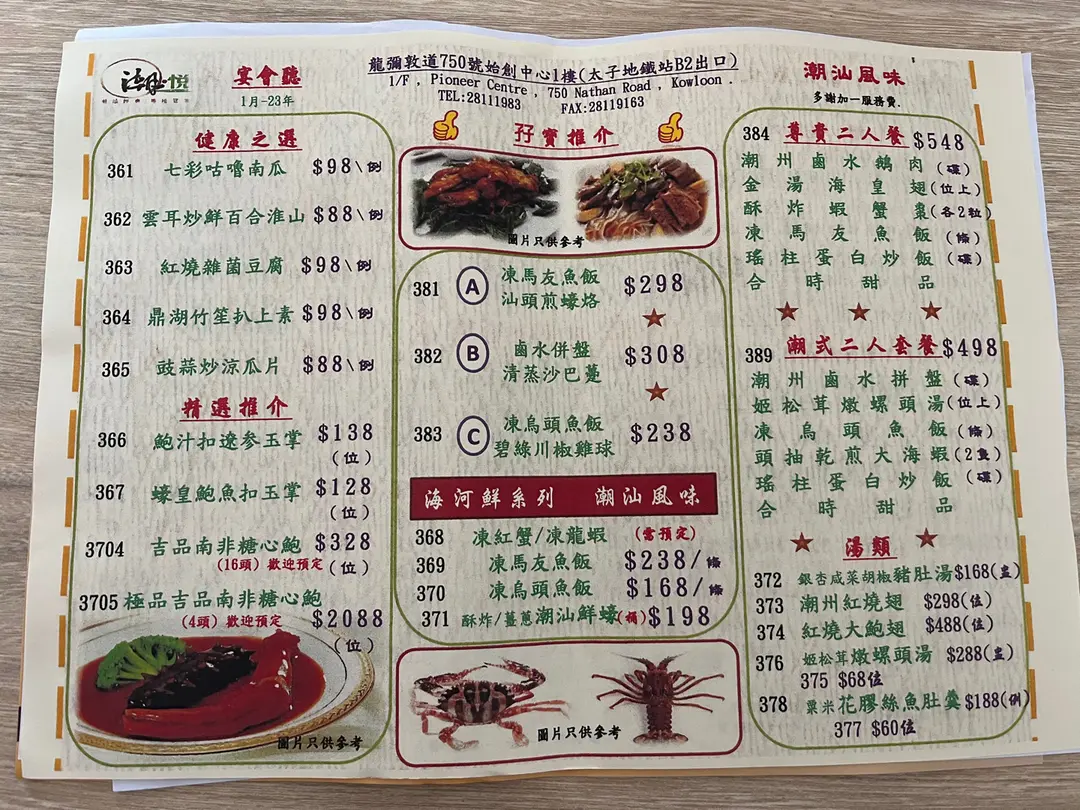 潮悅
宴會廳
1月-23年
龍彌敦道750號始創中心1樓(太子地鐵站B2出口)
1/F , Pioneer Centre , 750 Nathan Road , Kowloon .
TEL:28111983 FAX:28119163
潮汕風味
多謝加一服務費.
健康之選
361 七彩咕嚕南瓜 $98\例
362 雲耳炒鮮百合淮山 $88\例
363 紅燒雜菌豆腐 $98\例
364 鼎湖竹笙扒上素 $98\例
365 豉蒜炒涼瓜片 $88\例
精選推介
366 鮑汁扣遼参玉掌 $138
(位)
367 蠔皇鮑魚扣玉掌 $128
(位)
3704 吉品南非糖心鮑 $328
(16頭) 歡迎預定 (位)
3705 極品吉品南非糖心鮑
(4頭) 歡迎預定 $2088
(位)
圖片只供參考
孖寶推介
圖片只供參考
381 A 凍馬友魚飯 $298
汕頭煎蠔烙
382 B 鹵水併盤 $308
清蒸沙巴躉
383 C 凍烏頭魚飯 $238
碧綠川椒雞球
海河鮮系列 潮汕風味
368 凍紅蟹/凍龍蝦 (需預定)
369 凍馬友魚飯 $238/條
370 凍烏頭魚飯 $168/條
371 酥炸/薑蔥潮汕鮮蠔 $198
圖片只供參考
384 尊貴二人餐 $548
潮州鹵水鵝肉 (碟)
金湯海皇翅 (位上)
酥炸蝦蟹棗 (各2粒)
凍馬友魚飯 (條)
瑤柱蛋白炒飯 (碟)
合時甜品
389 潮式二人套餐 $498
潮州鹵水拼盤 (碟)
姬松茸燉螺頭湯 (位上)
凍烏頭魚飯 (條)
頭抽乾煎大海蝦 (2隻)
瑤柱蛋白炒飯 (碟)
合時甜品
湯類
372 銀杏咸菜胡椒豬肚湯 $168(盅)
373 潮州紅燒翅 $298(位)
374 紅燒大鮑翅 $488(位)
376 姬松茸燉螺頭湯 $288(盅)
375 $68位
378 粟米花膠絲魚肚羹 $188(例)
377 $60位